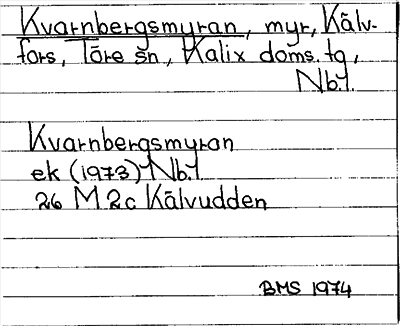 Kvarnbergsmyran, myr, Kälv-
fors, Töre sn, Kalix doms. tg,
Nb.l.
Kvarnbergsmyran
ek (1973) Nb.l
26 M 2c Kälvudden
BMS 1974